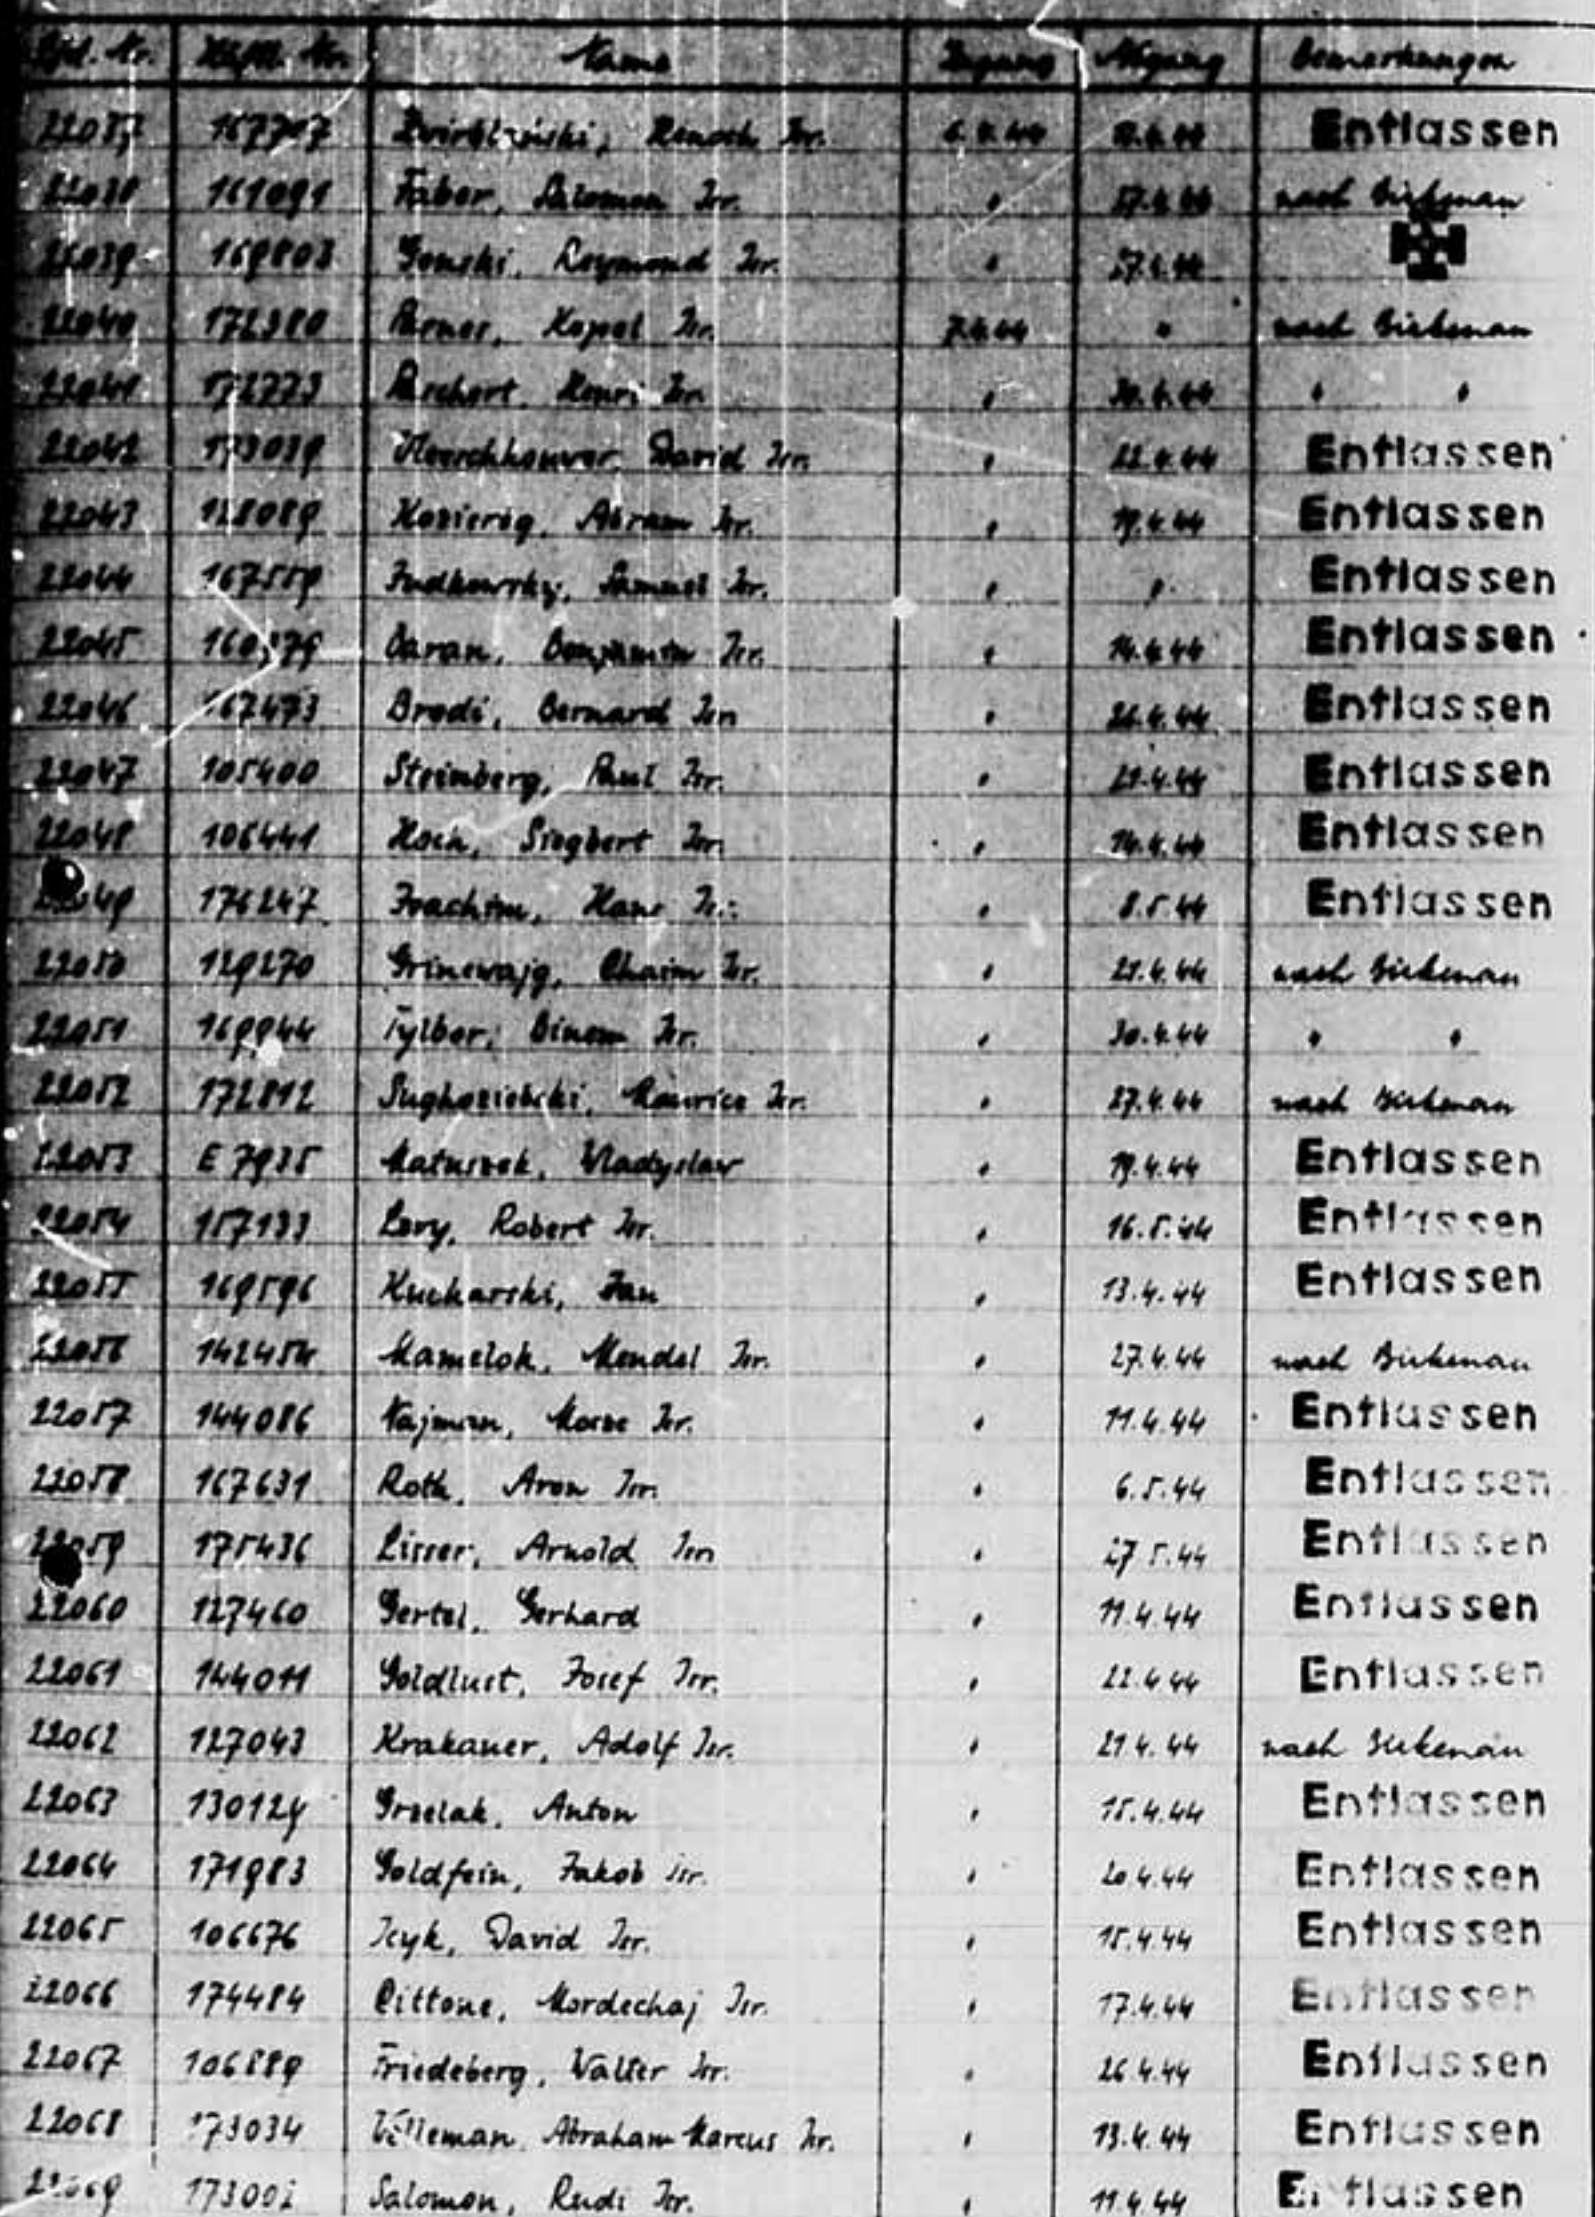 Lfd. Nr. Häftl. Nr. Name Zugang Abgang Bemerkungen
22037 167707 Isr. 6.4.44 Entlassen
22038 161091 Faber, Salomon Isr. " 27.4.44 nach Birkenau
22039 169803 Gonski, Raymond Isr. " 27.4.44
22040 172380 Kopel Isr. 7.4.44 " nach Birkenau
22041 172773 Henri Isr. " 30.4.44 " "
22042 173039 David Isr. " 22.4.44 Entlassen
22043 128089 Abram Isr. " 19.4.44 Entlassen
22044 167559 Judkowsky, Samuel Isr. " " Entlassen
22045 Baran, Benjamin Isr. " 14.4.44 Entlassen
22046 167473 Brodi, Bernard Isr. " 26.4.44 Entlassen
22047 105400 Steinberg, Paul Isr. " 21.4.44 Entlassen
22048 106441 Koch, Siegbert Isr. " 14.4.44 Entlassen
22049 176247 Joachim, Hans Isr. " 8.5.44 Entlassen
22050 129270 Grinewajg, Chaim Isr. " 21.4.44 nach Birkenau
22051 169944 Tylbor, Binem Isr. " 30.4.44 " "
22052 172812 Maurice Isr. " 27.4.44 nach Birkenau
22053 E 7935 Matuszek, Wladyslaw " 19.4.44 Entlassen
22054 157133 Levy, Robert Isr. " 16.5.44 Entlassen
22055 169596 Kucharski, Jan " 13.4.44 Entlassen
22056 142454 Mamelok, Mendel Isr. " 27.4.44 nach Birkenau
22057 144086 Najman, Isr. " 11.4.44 Entlassen
22058 167631 Roth, Aron Isr. " 6.5.44 Entlassen
22059 175436 Lisser, Arnold Isr. " 27.5.44 Entlassen
22060 127460 Gertel, Gerhard " 11.4.44 Entlassen
22061 144011 Goldlust, Josef Isr. " 22.4.44 Entlassen
22062 127043 Krakauer, Adolf Isr. " 21.4.44 nach Birkenau
22063 130129 Grzelak, Anton " 15.4.44 Entlassen
22064 171983 Goldfein, Jakob Isr. " 20.4.44 Entlassen
22065 106676 Icyk, David Isr. " 15.4.44 Entlassen
22066 174484 Cittone, Mordechaj Isr. " 17.4.44 Entlassen
22067 106889 Friedeberg, Walter Isr. " 26.4.44 Entlassen
22068 173034 Velleman, Abraham Marcus Isr. " 13.4.44 Entlassen
22069 173002 Salomon, Rudi Isr. " 11.4.44 Entlassen